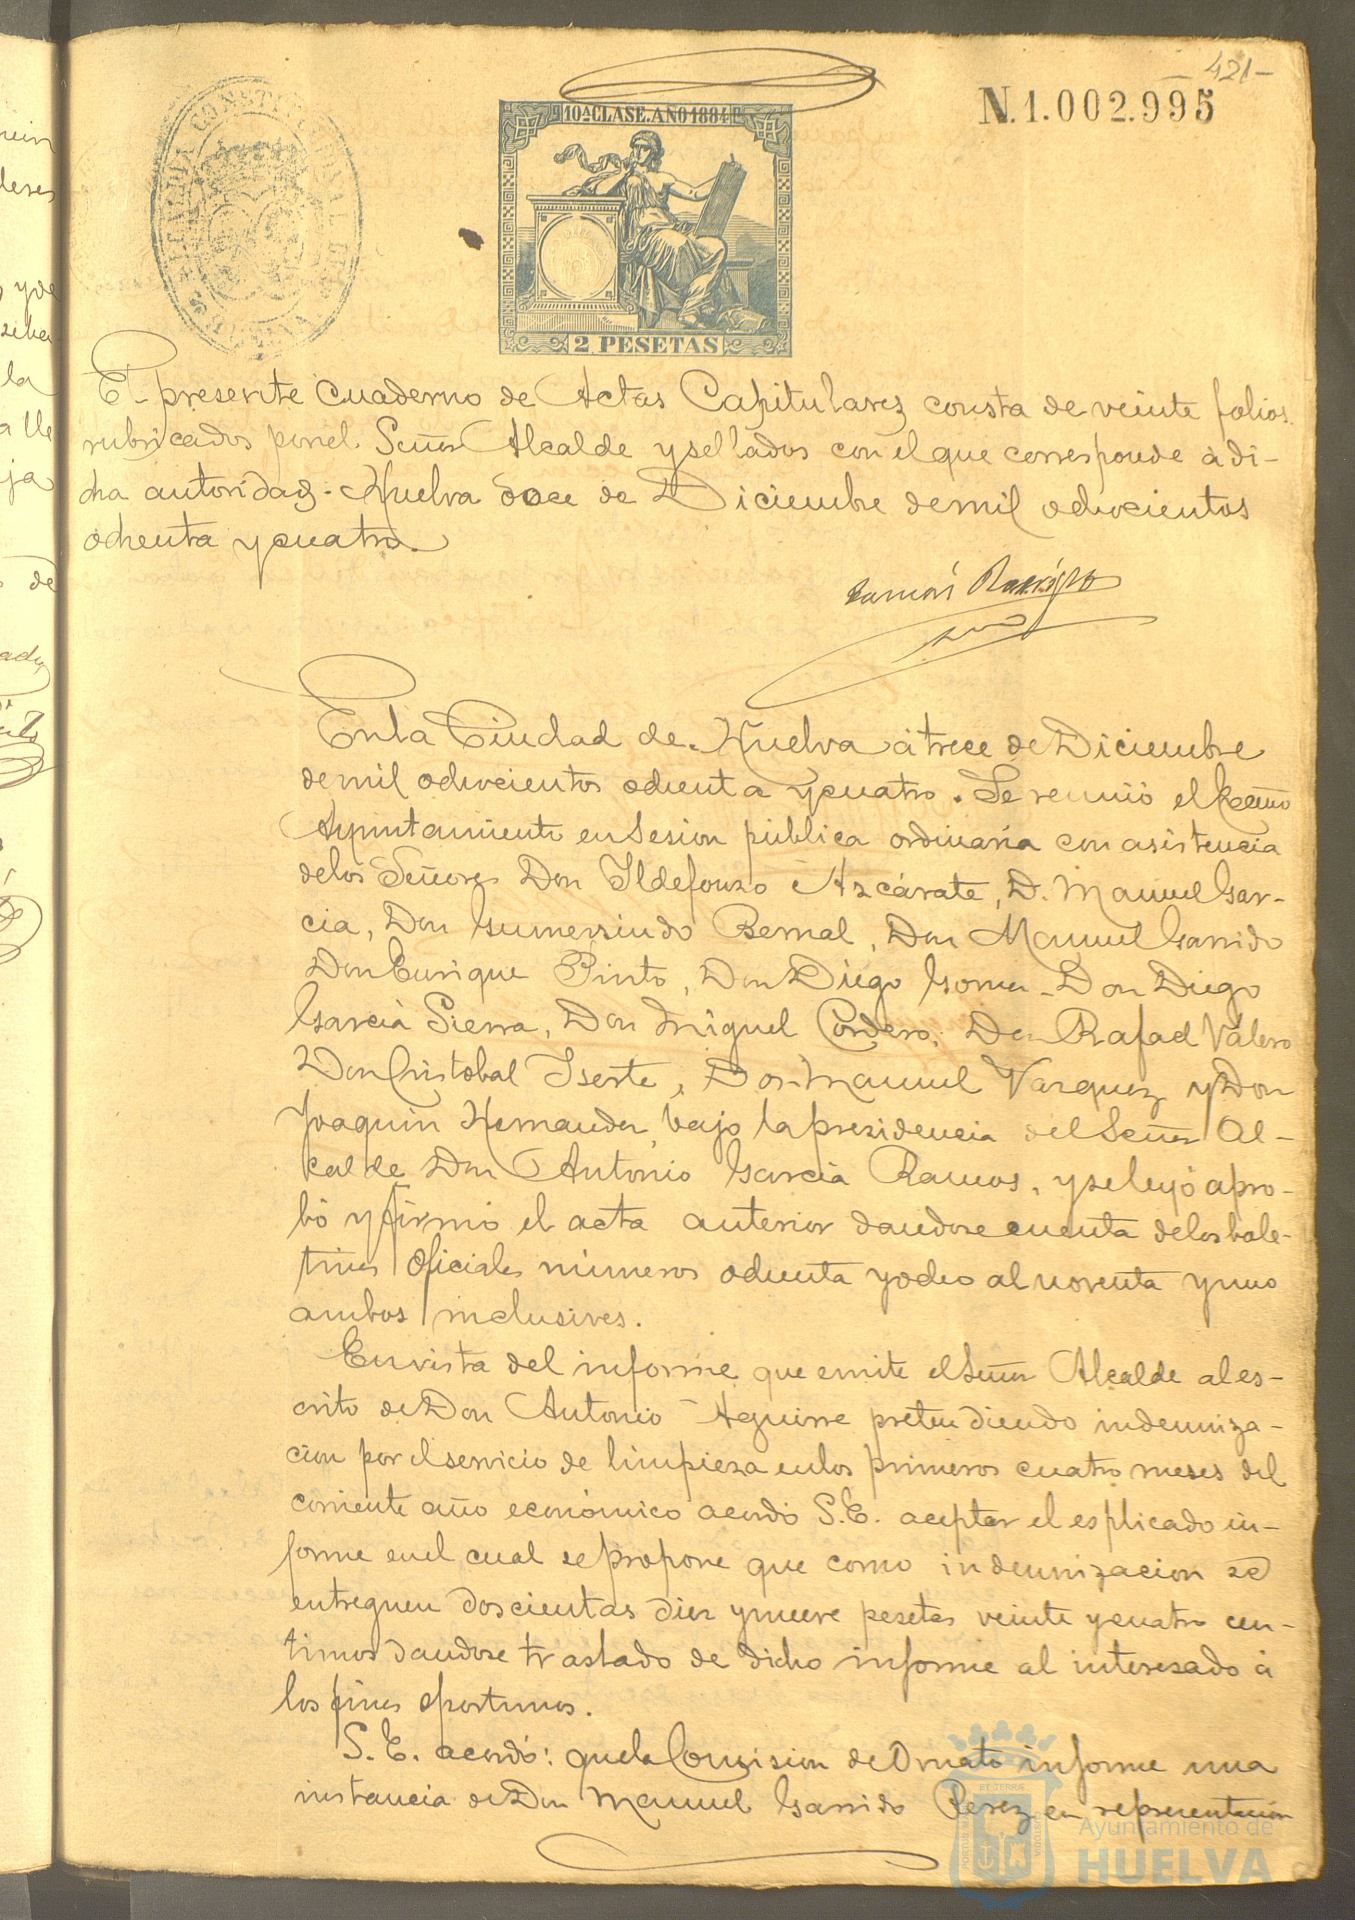 421-
N.1.002.995
10ª CLASE. AÑO 1884
2 PESETAS
El presente cuaderno de Actas Capitulares consta de veinte folios
rubricados por el Señor Alcalde y sellados con el que corresponde á di-
cha autoridad. Huelva doce de Diciembre de mil ochocientos
ochenta y cuatro.
Ramón
En la Ciudad de Huelva á trece de Diciembre
de mil ochocientos ochenta y cuatro. Se reunió el Excmo
Ayuntamiento en Sesion pública ordinaria con asistencia
de los Señores Don Ildefonzo Azcárate, D. Manuel Gar-
cia, Don Gumerzindo Bernal, Don Manuel Garrido
Don Enrique Pinto, Don Diego Gomez Don Diego
García Sierra, Don Miguel Cordero, Don Rafael Valero
Don Cristobal Iserte, Don Manuel Vazquez y Don
Joaquin Hernandez, bajo la prezidencia del Señor Al-
calde Don Antonio García Ramos, y se leyó apro-
bó y firmó el acta anterior dandose cuenta de los bole-
tines Oficiales números ochenta y ocho al noventa y uno
ambos inclusives.
En vista del informe que emite el Señor Alcalde al es-
crito de Don Antonio Aguirre pretendiendo indemniza-
cion por el servicio de limpieza en los primeros cuatro meses del
corriente año económico acordó S.E. aceptar el esplicado in-
forme en el cual se propone que como indemnizacion se
entreguen doscientas diez y nueve pesetas veinte y cuatro cen-
timos dandose traslado de dicho informe al interezado á
los fines oportunos.
S.E. acordó: que la Comision de Ornato informe una
instancia de Don Manuel Garrido Perez en representacion
Ayuntamiento de
HUELVA